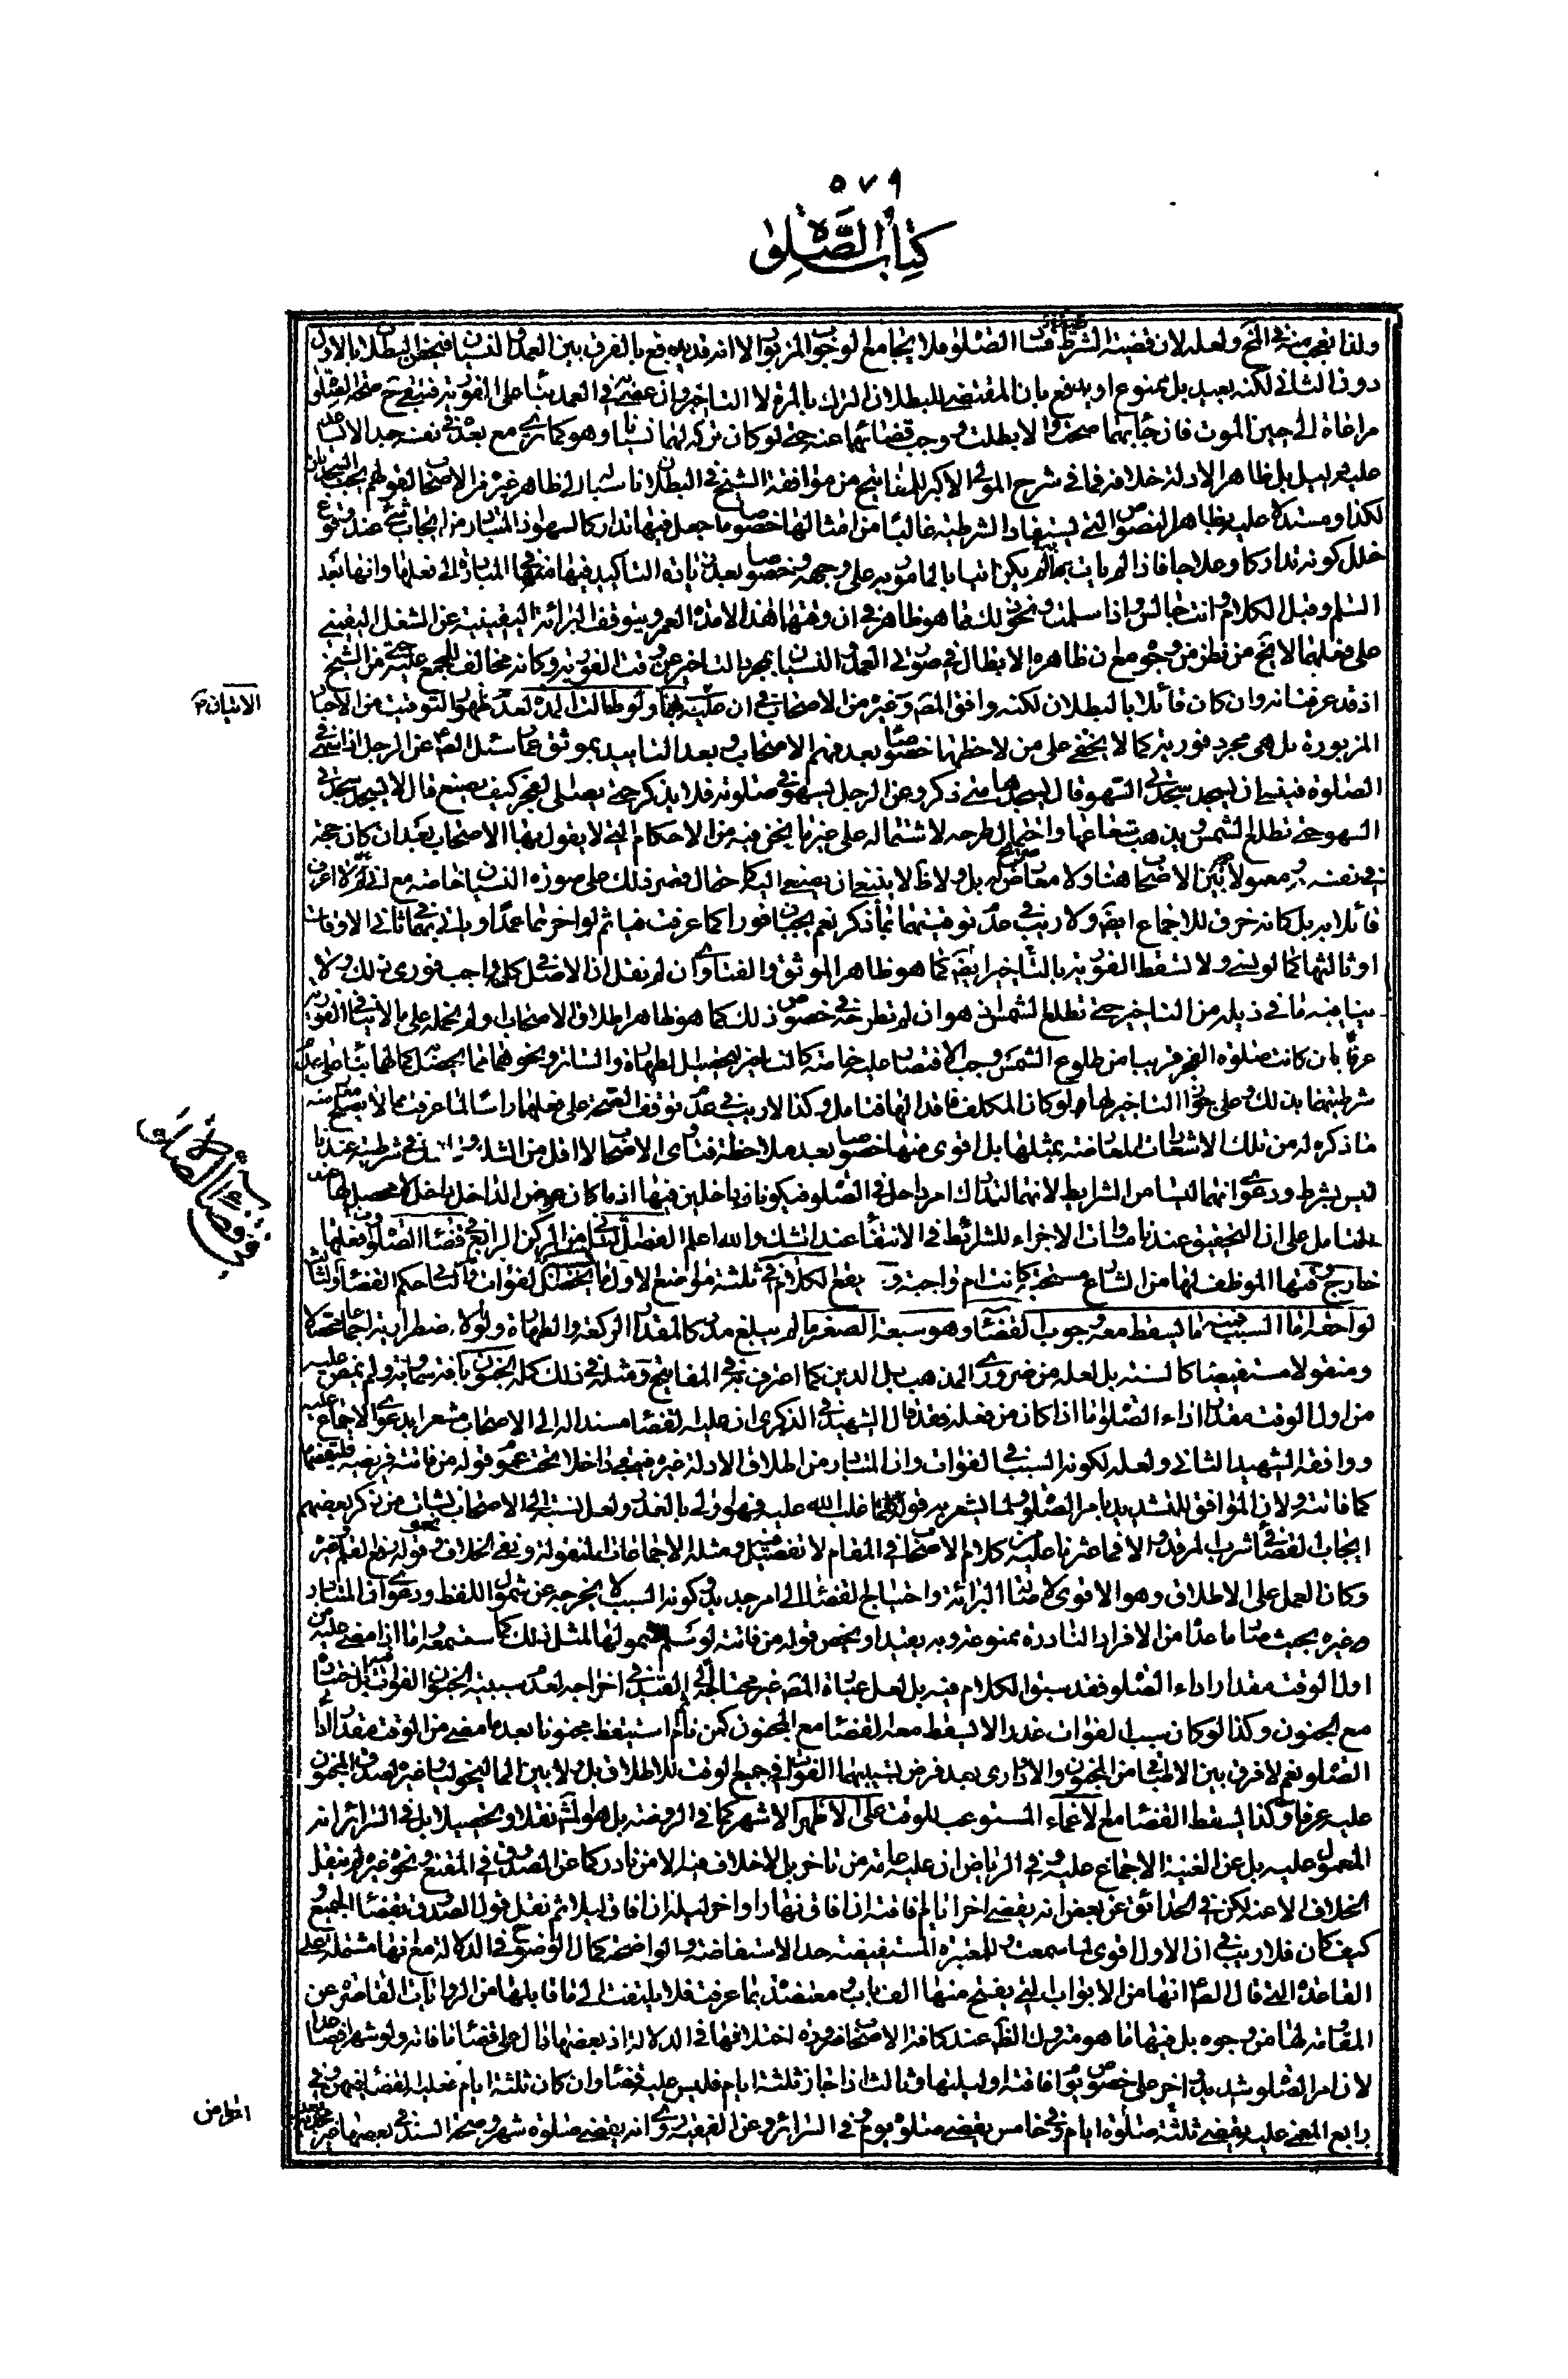 ٥٧٩
كتاب الصلوة
ولذا تعجب منه في ولعله لان قضية الشرط فساد الصلوة فلا يجامع الوجوب المزبور الا انه قد يدفع بالفرق بين العمد والنسيان فيختص البطلان بالاول
دون الثاني لكنه بعيد بل ممنوع او يدفع بان المقتضي للبطلان الترك بالمرة لا التاخير وان عصى في العمد بناء على الفورية فتبقى ح صحة الصلوة
مراعاة الى حين الموت فان جاء بهما صحت والا بطلت ووجب قضائها عنه حتى لو كان تركه لهما نسيانا وهو كما ترى مع بعده في نفسه جدا لا
عليه دليل بل ظاهر الادلة خلافه فما في شرح المولى الاكبر للمفاتيح من موافقة الشيخ في البطلان ناسبا له الى ظاهر غيره من الاصحاب لقولهم يجب
لكذا ومستدلا عليه بظاهر النصوص التي يستفاد الشرطية غالبا من امثالها خصوصا ما جعل فيها تداركا لسهو اذ المتبادر من ايجاب شئ عند وقوع
خلل كونه تداركا وعلاجا فاذا لم يات بما لم يكن اتيا بالمامور به على وجهه وخصوصا بعد زيادة التاكيد فيها المبادرة الى فعلها وانها بعد
السلم وقبل الكلام وانت جالس واذا سلمت ونحو ذلك مما هو ظاهر في ان وقتها هذا لا مدة العمر ويتوقف البرائة اليقينية عن الشغل اليقيني
على فعلهما لا يخ من نظر من وجوه مع ان ظاهره الابطال في صورتي العمد والنسيان بمجرد التاخير عن وقت الفورية وكانه مخالف للمجمع عليه حتى من الشيخ
اذ قد عرفت انه وان كان قائلا بالبطلان لكنه وافق المص وغيره من الاصحاب في ان عليه الاتيان بهما ولو طالت المدة لعدم ظهور التوقيت من الاخبار
المزبورة بل هى مجرد فورية كما لا يخفى على من لاحظها خصوصا بعد فهم الاصحاب وبعد التاييد بموثق عمار سئل الص عن الرجل اذا سهى في
الصلوة فينسى ان يسجد سجدتي السهو قال يسجدهما متى ذكر وعن الرجل يسهو في صلوته فلا يذكر حتى يصلي الفجر كيف يصنع قال لا يسجد سجدتي
السهو حتى تطلع الشمس ويذهب شعاعها واحتمال طرحه لاشتماله على غير ما نحن فيه من الاحكام التي لا يقول بها الاصحاب بعد ان كان حجة
في نفسه ومعمولا به بين الاصحاب هنا ولا معارض له بل ولا ظ لا ينبغي ان يصغى اليه كاحتمال قصر ذلك على صورة النسيان خاصة مع اني لم اعرف
قائلا به بل كانه خرق للاجماع ايض ولا ريب في عدم توقيتهما بما ذكر نعم يجبان فورا كما عرفت فياثم لو اخرهما عمدا وياتي بهما في ثاني الاوقات
او ثالثها كما لو نسى ولا تسقط الفورية بالتاخير ايض كما هو ظاهر الموثق والفتاوى وان لم نقل ان الاصل في كل واجب فوري ذلك ولا
ينافيه ما في ذيله من التاخير حتى تطلع الشمس اذ هو ان لم نطرحه في خصوص ذلك كما هو ظاهر اطلاق الاصحاب ولم نحمله على ما لا ينافي الفورية
عرفا بان كانت صلوة الفجر قريبا من طلوع الشمس وجب الاقتصار عليه خاصة كالتاخير لتحصيل الطهارة والساتر ونحوهما مما يحصل كمالها بناء على عدم
شرطيتهما بذلك وعلى جواز التاخير لها ولو كان المكلف فاقدا لها فتامل وكذا لا ريب في عدم توقف الصحة على فعلهما راسا لما عرفت مما لا يصلح معارضته
ما ذكره له من تلك الاشعارات المعارضة بمثلها بل اقوى منها خصوصا بعد ملاحظة فتاوى الاصحاب لا اقل من الشك في شرطيته عندنا
ليس بشرط ودعوى انهما ليسا من الشرايط لانهما لتدارك امر داخل في الصلوة فيكونان داخلين فيها اذ ما كان عوض الداخل داخل لا محصل لها عند
التامل على ان التحقيق عندنا مساواة الاجزاء للشرائط في الانتفاء عند الشك والله اعلم الفصل الثاني من الركن الرابع في قضاء الصلوة وفعلها
خارج وقتها الموظف لها من الشارع مستحبة كانت ام واجبة و يقع الكلام في ثلثة مواضع الاول في سبب الفوات و الثاني حكم القضاء والثالث
لواحقه اما السبب فمنه ما يسقط معه وجوب القضاء وهو سبعة الصغر ما لم يبلغ مدركا لمقدار الركعة والطهارة ولو الاضطرارية اجماعا محصلا
ومنقولا مستفيضا كالسنة بل لعله من ضروري المذهب بل الدين كما اعترف به في المفاتيح ومثله في ذلك كله الجنون بافة سماوية ولم يمض عليه
من اول الوقت مقدار اداء الصلوة اما اذا كان من فعله فقد قال الشهيد في الذكرى ان عليه القضاء مسندا له الى الاصحاب مشعرا بدعوى الاجماع عليه
ووافقه الشهيد الثاني ولعله لكونه السبب في الفوات وان المتبادر من اطلاق الادلة غيره فيبقى داخلا تحت عموم قوله من فاتته فريضة فليقضها
كما فاتته ولانه الموافق للتشديد بامر الصلوة ولما يشعر به قوله كلما غلب الله عليه فهو اولى بالعذر ولعل نسبته الى الاصحاب نشات من ذكر بعضهم
ايجاب القضاء في شرب المرقد والا فما عثرنا عليه من كلام الاصحاب في المقام لا تفصيل فيه ومثله الاجماعات المنقولة ونفى الخلاف ونحو قوله رفع القلم وغيره
وكان العمل على الاطلاق وهو الاقوى لاصالة البرائة واحتياج القضاء الى امر جديد وكونه السبب لا يخرجه عن شمول اللفظ ودعوى ان المتبادر
غيره بحيث صار ما عدا من الافراد النادرة ممنوعة وبه يقيد او يخص قوله من فاتته لو سلم شمولها لمثل ذلك كما ستسمعه اما اذا مضى عليه من
اول الوقت مقدار اداء الصلوة فقد سبق الكلام فيه بل لعل عبارة المص غير محتاجة الى القيد في اخراجه لعدم سببية الجنون الفوات بل اختياره
مع الجنون وكذا لو كان سبب الفوات غدرا لا يسقط معه القضاء مع الجنون كمن نام ثم استيقظ مجنونا بعد ما مضى من الوقت مقدار اداء
الصلوة نعم لا فرق بين الاطباقي من الجنون والادواري بعد فرض تسبيبهما الفوات في جميع الوقت للاطلاق بل ولا بين الماليخوليا وغيره لصدق الجنون
عليه عرفا وكذا يسقط القضاء مع الاغماء المستوعب للوقت على الاظهر الاشهر كما في الروضة بل هو المشهور نقلا وتحصيلا بل في السرائر انه
المعمول عليه بل عن الغنية الاجماع عليه وفي الرياض ان عليه عامة من تاخر بل لا خلاف فيه الا من نادر كما عن الصدوق في المقنع ونحوه غيره لم ينقل
الخلاف الا عنه لكن في الحدائق عن بعض انه يقضي اخر ايام فاتته ان افاق نهارا او اخر ليلة ان افاق ليلا ثم نقل قول الصدوق بقضاء الجميع و
كيف كان فلا ريب في ان الاول اقوى لما سمعت وللمعتبرة المستفيضة حد الاستفاضة والواضحة كمال الوضوح في الدلالة مع انها مشتملة على
القاعدة التي قال الص انها من الابواب التي يفتح منها الف باب ومعتضدة بما عرفت فلا يلتفت الى ما قابلها من الروايات القاصرة عن
المقاومة لها من وجوه بل فيها ما هو متروك الظ عند كافة الاصحاب وزده اختلافها في الدلالة اذ بعضها دال على قضاء ما فاته ولو شهرا فصاعدا
لان امر الصلوة شديد واخر على خصوص يوم افاقته او ليلتها وثالث اذا جاز ثلثة ايام فليس عليه قضاء وان كان ثلثة ايام فعليه القضاء فيهن وفي
رابع المغمى عليه يقضي ثلثة صلوة ايام وفي خامس يقضي صلوة يوم وفي السرائر وعن الفقيه وروى انه يقضي صلوة شهر وصحة السند في بعضها غير
الاتيان
في قضاء الصلوة